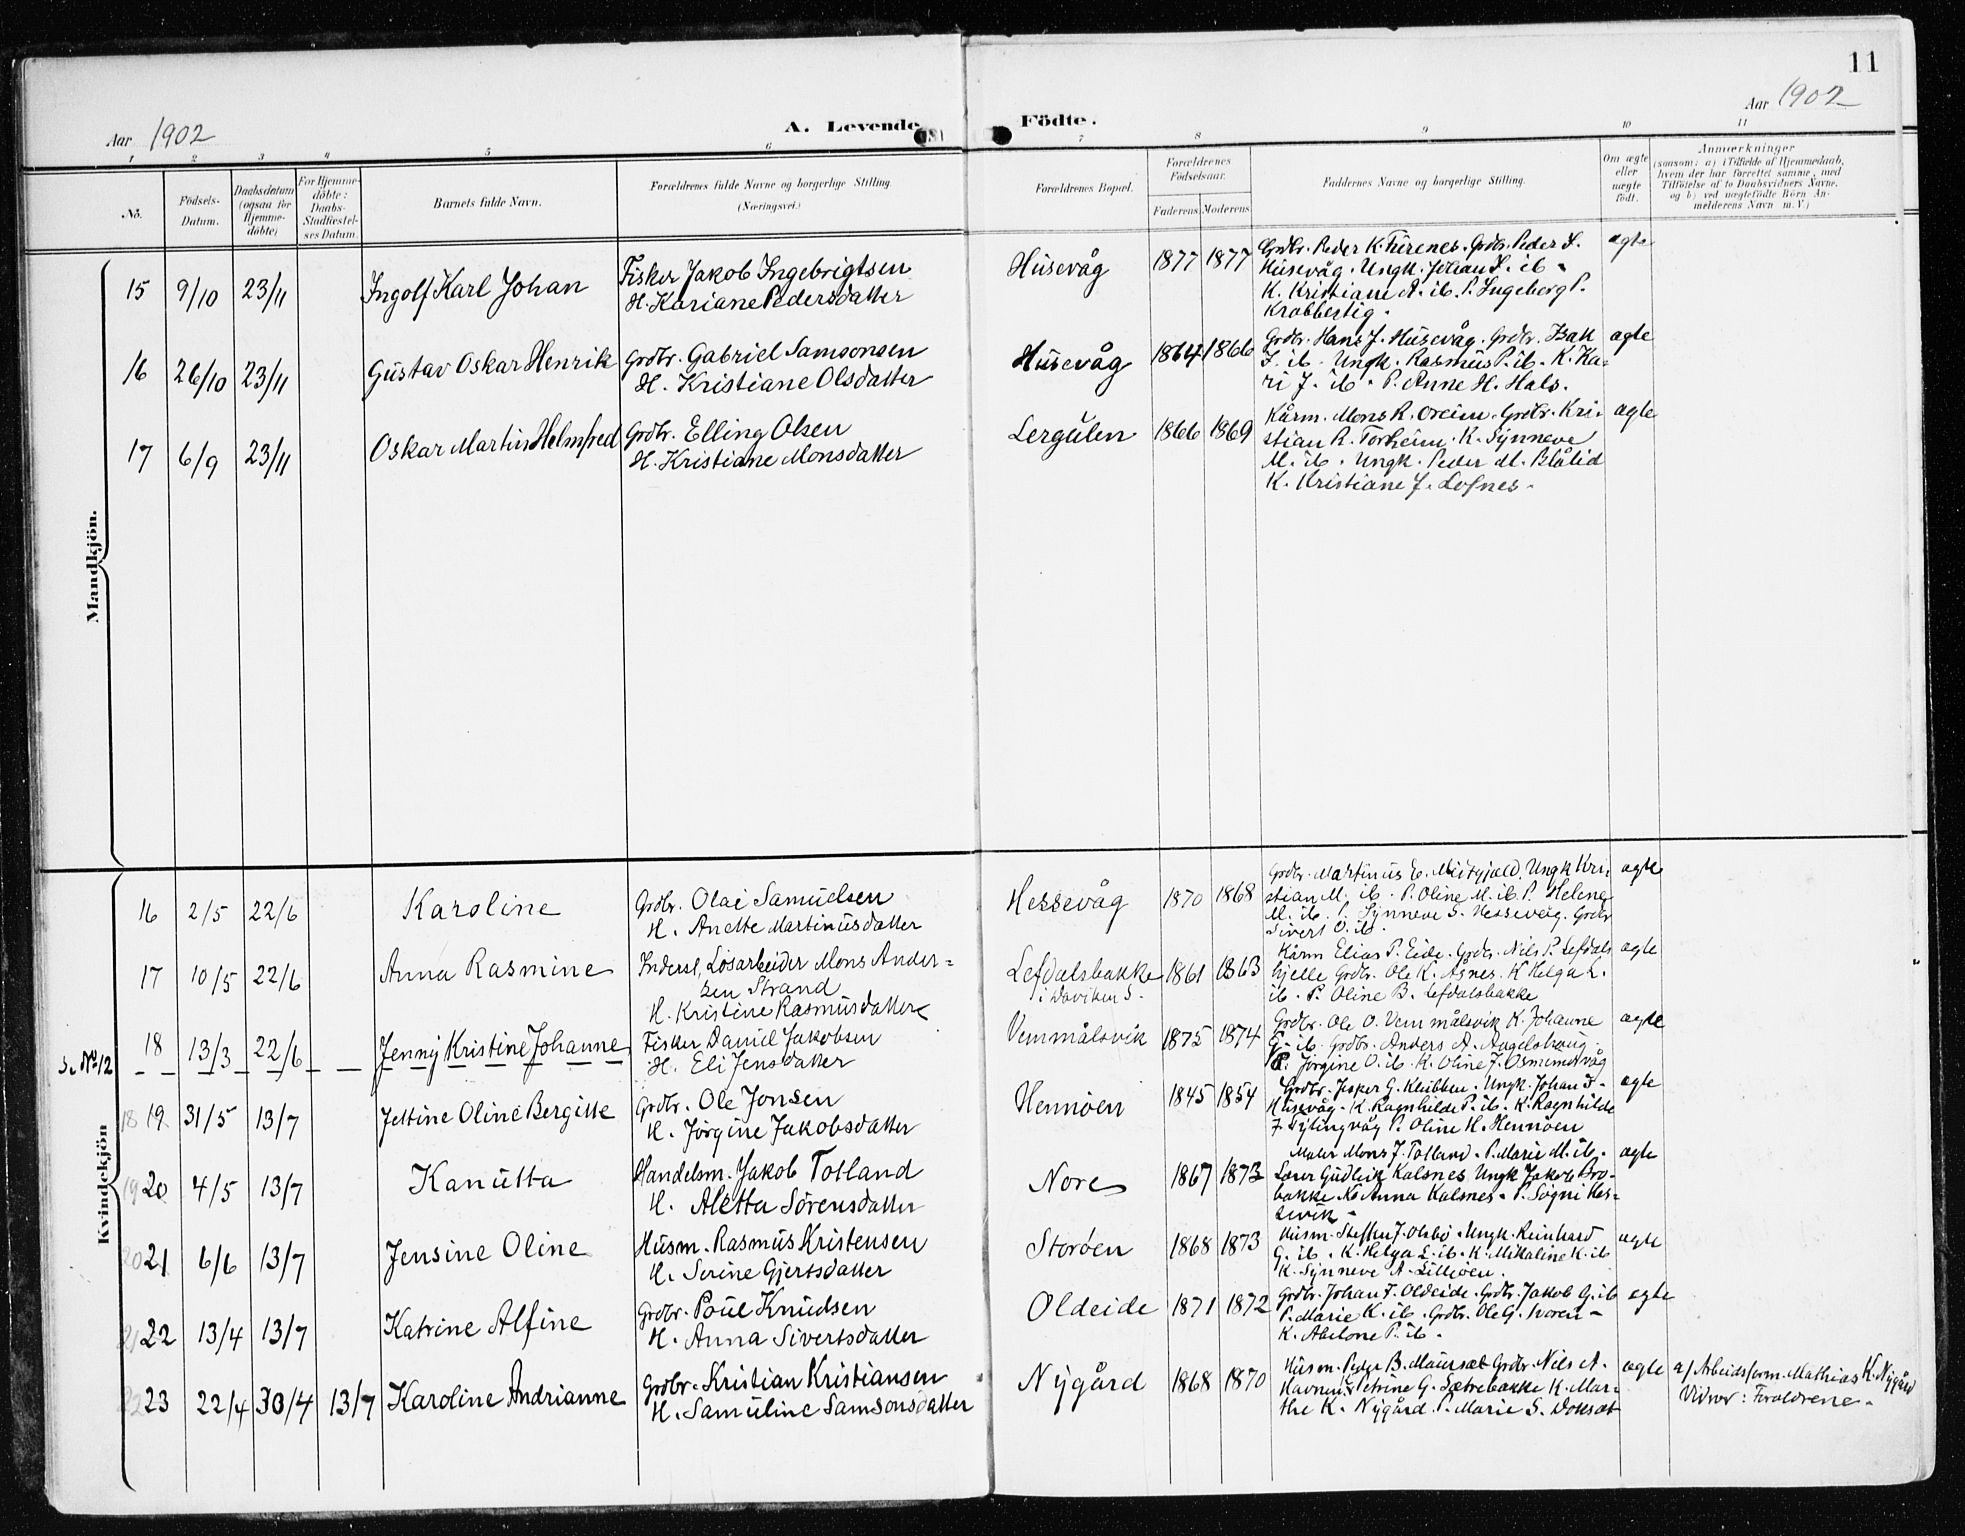 11
Aar 1902
A. Levende Födte.
Aar 1902
1 2 3 4 5 6 7 8 9 10 11
No.
Födsels-Datum.
Daabsdatum (ogsaa for Hjemme-döbte)
For Hjemme-döbte: Daabs-Stadfæstel-ses Datum.
Barnets fulde Navn.
Forældrenes fulde Navne og borgerlige Stilling.
(Næringsvei.)
Forældrenes Bopæl.
Forældrenes Födselsaar.
Faderens Moderens
Faddernes Navne og borgerlige Stilling.
Om ægte eller uægte födt.
Anmærkninger
(saasom: a) i Tilfælde af Hjemmedaab,
hvem der har forrettet samme, med
Tilföielse af to Daabsvidners Navne,
og b) ved uægtefödte Börn An-
melderens Navn m. V.)
Mandkjön.
15 9/10 23/11 Ingolf Karl Johan
Fisker Jakob Ingebrigtsen
H. Kariane Pedersdatter
Husevåg 1877 1877
Grdbr. Peder K. Furenes. Grdbr. Peder I.
Husevåg. Ungk. Johan I. ib.
K. Kristiane A. ib. P. Ingeborg P.
Krabbestig.
ægte
16 26/10 23/11 Gustav Oskar Henrik
Grdbr. Gabriel Samsonsen
H. Kristiane Olsdatter
Husevåg 1864 1866
Grdbr. Hans J. Husevåg. Grdbr. Isak
I. ib. Ungk. Rasmus P. ib. K. Ka-
ri J. ib. P. Anne H. Hals.
ægte
17 6/9 23/11 Oskar Martin Helmfred
Grdbr. Elling Olsen
H. Kristiane Monsdatter
Lergulen 1866 1869
Kårm. Mons R. Oreim. Grdbr. Kri-
stian R. Torheim. K. Synneve
M. ib. Ungk. Peder M. Blålid
K. Kristiane J. Lofnes.
ægte
Kvindekjön
16 2/5 22/6 Karoline
Grdbr. Olai Samuelsen
H. Anette Martinusdatter
Hessevåg 1870 1868
Grdbr. Martinus E. Midtgjæld. Ungk Kri-
stian M. ib. P. Oline M. ib. P. Helene
M. ib. P. Synneve S. Hessevåg. Grdbr
Sivert O. ib.
ægte
17 10/5 22/6 Anna Rasmine
Inderst, Løsarbeider Mons Ander-
sen Strand
H. Kristine Rasmusdatter
Lefdalsbakke
i Daviken S.
1861 1863
Kårm Elias P. Eide. Grdbr. Nils P. Lefdals
hjelle Grdbr. Ole K. Åsnes. K Helga L.
ib. P. Oline B. Lefdalsbakke
ægte
s. No 12
18 13/3 22/6 Jenny Kristine Johanne
Fisker Daniel Jakobsen
H. Eli Jensdatter
Vemmålsvik 1875 1874
Grdbr. Ole O. Vemmålsvik K. Johanne
E. ib. Grdbr. Anders A. Angelshaug.
P. Jørgine O. ib. K. Oline J. Osmundsvåg
ægte
18 19 31/5 13/7 Jettine Oline Bergitte
Grdbr. Ole Jonsen
H. Jørgine Jakobsdatter
Hennøen 1845 1854
Grdbr. Jesper G. Klubben. Ungk. Johan I.
Husevåg. K. Ragnhilde P. ib. K. Ragnhilde
J. Sytingvåg P. Oline H. Hennøen
ægte
19 20 4/5 13/7 Kanutta
Handelsm. Jakob Totland
H. Aletta Sørensdatter
Nore 1867 1873
Maler Mons J. Totland. P. Marie M. ib.
Lærer Gudleik Kalsnes Ungk Jakob Bro-
bakke K. Anna Kalsnes. P. Sogni Hes-
sevik
ægte
20 21 6/6 13/7 Jensine Oline
Husm. Rasmus Kristensen
H. Serine Gjertsdatter
Storøen 1868 1873
Husm. Steffen J. Olsbø. Ungk. Reinhard
G. ib. K. Helga L. ib. K. Mikaline K. ib
K. Synneve A. Lilliøen.
ægte
21 22 13/4 13/7 Katrine Alfine
Grdbr. Poul Knudsen
H. Anna Sivertsdatter
Oldeide 1871 1872
Grdbr. Johan I. Oldeide. Grdbr. Jakob G. ib
P. Marie K. ib. Grdbr. Ole G. Svoren
K. Abelone P. ib.
ægte
22 23 22/4 30/4 13/7 Karoline Andrianne
Grdbr. Kristian Kristiansen
H. Samuline Samsonsdatter
Nygård 1868 1870
Husm. Peder B. Maursæt Grdbr. Nils A.
Havnen K. Petrine G. Sætrebakke K. Mar-
the K. Nygård. P. Marie S. Dokset
ægte
a/ Arbeidsform. Mathias K. Nygård
Vidner: Forældrene.